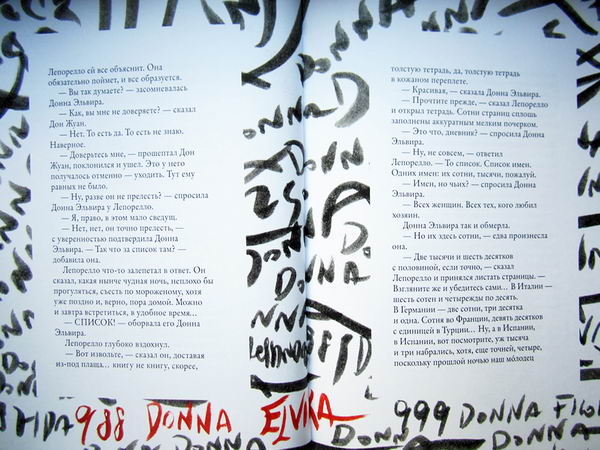 Лепорелло ей все объяснит. Она
обязательно поймет, и все образуется.
— Вы так думаете? — засомневалась
Донна Эльвира.
— Как, вы мне не доверяете? — сказал
Дон Жуан.
— Нет. То есть да. То есть не знаю.
Наверное.
— Доверьтесь мне, — прошептал Дон
Жуан, поклонился и ушел. Это у него
получалось отменно — уходить. Тут ему
равных не было.
— Ну, разве он не прелесть? — спросила
Донна Эльвира у Лепорелло.
— Я, право, в этом мало сведущ.
— Нет, нет, он точно прелесть, —
с уверенностью подтвердила Донна
Эльвира. — Так что за список там? —
добавила она.
Лепорелло что-то залепетал в ответ. Он
сказал, какая нынче чудная ночь, неплохо бы
прогуляться, съесть по мороженому, хотя
уже поздно и, верно, пора домой. Можно
и завтра встретиться, в удобное время...
— СПИСОК! — оборвала его Донна
Эльвира.
Лепорелло глубоко вздохнул.
— Вот извольте, — сказал он, доставая
из-под плаща... книгу не книгу, скорее,
толстую тетрадь, да, толстую тетрадь
в кожаном переплете.
— Красивая, — сказала Донна Эльвира.
— Прочтите прежде, — сказал Лепорелло
и открыл тетрадь. Сотни страниц сплошь
заполнены аккуратным мелким почерком.
— Это что, дневник? — спросила Донна
Эльвира.
— Ну, не совсем, — ответил
Лепорелло. — То список. Список имен.
Одних имен: их сотни, тысячи, пожалуй.
— Имен, но чьих? — спросила Донна
Эльвира.
— Всех женщин. Всех тех, кого любил
хозяин.
Донна Эльвира так и обмерла.
— Но их здесь сотни, — едва произнесла
она.
— Две тысячи и шесть десятков
с половиной, если точно, — сказал
Лепорелло и принялся листать страницы. —
Взгляните же и убедитесь сами... В Италии —
шесть сотен и четырежды по десять.
В Германии — две сотни, три десятка
и одна. Сотня во Франции, девять десятков
с единицей в Турции... Ну, а в Испании,
в Испании, вот посмотрите, уж тысяча
и три набрались, хотя, еще точней, четыре,
поскольку прошлой ночью наш мо́лодец
988 DONNA ELVIRA
999 DONNA
DONNA